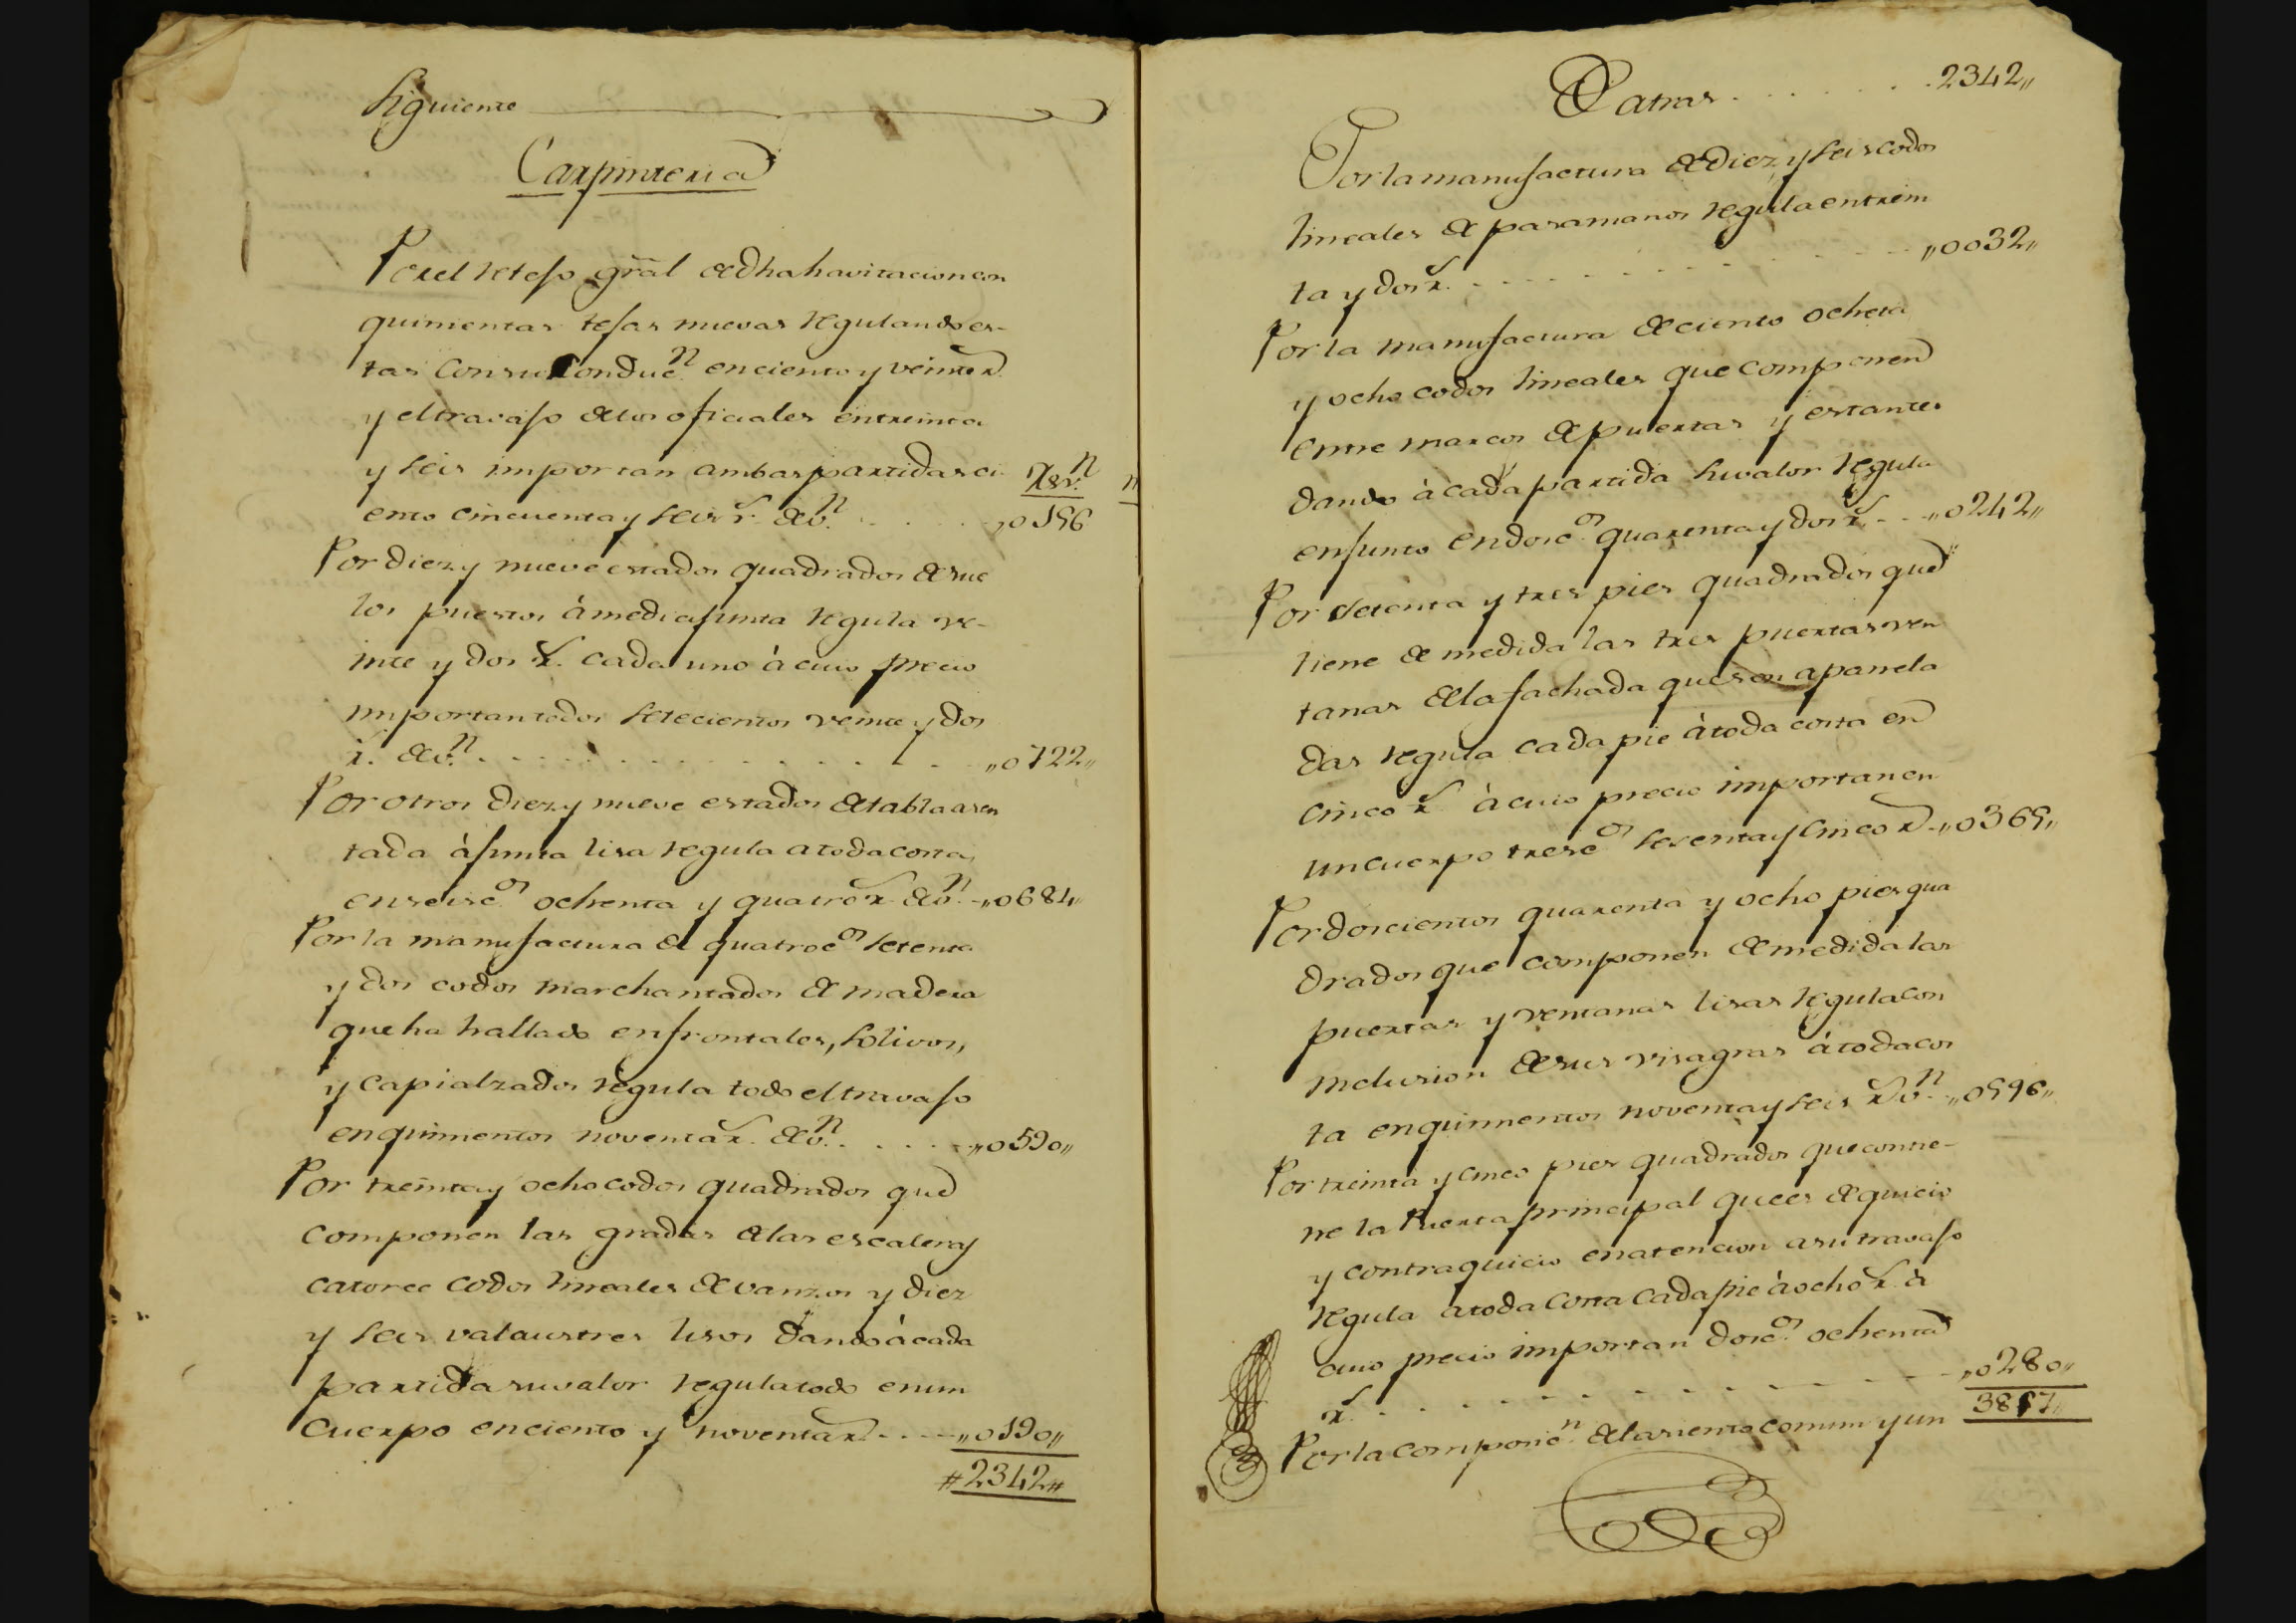 Siguiente
Carpinteria
Por el retejo gral de dha havitacion con
quinientas tejas nuevas regulando es-
tas con su conducn en ciento y veinte r
y el travajo de los oficiales en treinta
y seis importan ambas partidas ci- Rs vn
ento cincuenta y seis rs de vn. . . . . . „0156
Por diez y nueve estados quadrados de sue
los puestos à media junta regula ve-
inte y dos rs. cada uno à cuio precio
importan todos setecientos veinte y dos
rs. de vn. . . . . . . . . . . „0722„
Por otros diez y nueve estados de tabla asen
tada à junta lisa regula a toda costa,
en seiscos ochenta y quatro rs de vn. -„0684„
Por la manufactura de quatrocos setenta
y dos codos marchantados de madera
que ha hallado en frontales, solivos,
y capialzados regula todo el travajo
en quinientos noventa rs. de vn. . . . . „0590„
Por treinta y ocho codos quadrados que
componen las gradas de las escaleras
catorce codos lineales de vanzos y diez
y seis valaustres lisos dando à cada
partida su valor regula todo en un
cuerpo en ciento y noventa rs. - - - „0190„
#2342#
De atras . . . . . . . 2342„
Por la manufactura de diez y seis codos
lineales de pasamanos regula en trein
ta y dos rs. - - - - - - - - - „0032„
Por la manufactura de ciento ocheta
y ocho codos lineales que componen
entre marcos de puertas y estantes
dando à cada partida su valor regula
en junto en dosccos quarenta y dos rs. - - „0242„
Por setenta y tres pies quadrados que
tiene de medida las tres puertas ven
tanas de la fachada que son apanela
das regula cada pie à toda costa en
cinco rs à cuio precio importan en
un cuerpo trescos sesenta y cinco rs -„0365„
Por doscientos quarenta y ocho pies qua
drados que componen de medida las
puertas y ventanas lisas regula con
inclusion de sus visagras à toda cos
ta en quinientos noventa y seis rs vn. -„0596„
Por treinta y cinco pies quadrados que contie-
ne la Puerta principal que es de quicio
y contraquicio en atencion a su travajo
regula a toda costa cada pie à ocho rs. à
cuio precio importan doscos ochenta
rs. . . - - - - - - - - - „0280„
Por la composicn del asiento comun y un 3857„